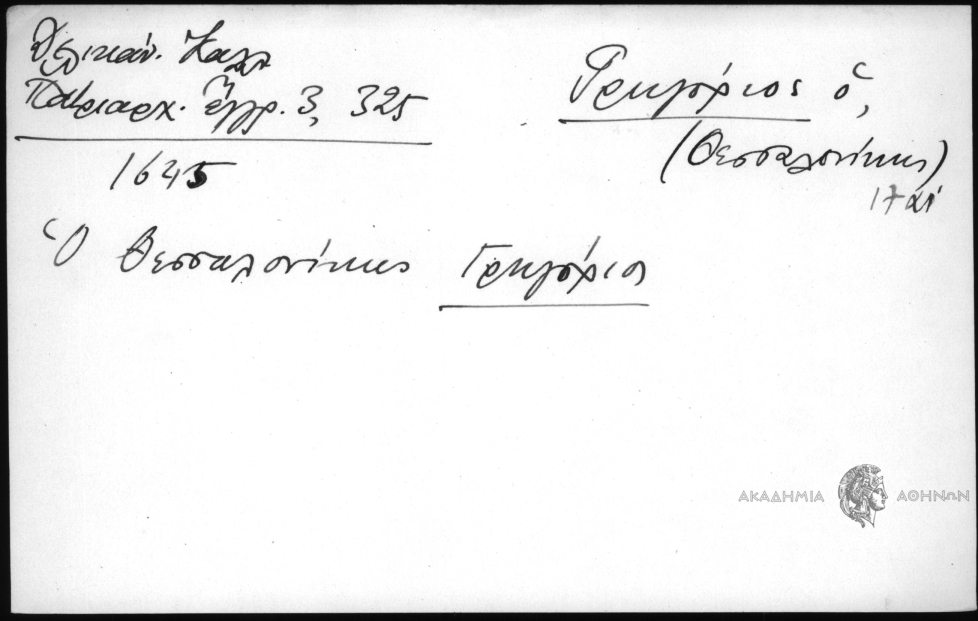 Δελικάν. Καλλ
Πατριαρχ. Ἔγγρ. 3, 325
1645
Γρηγόριος ὁ,
(Θεσσαλονίκης)
17 αἰ
Ὁ Θεσσαλονίκης Γρηγόριος
ΑΚΑΔΗΜΙΑ ΑΘΗΝΩΝ